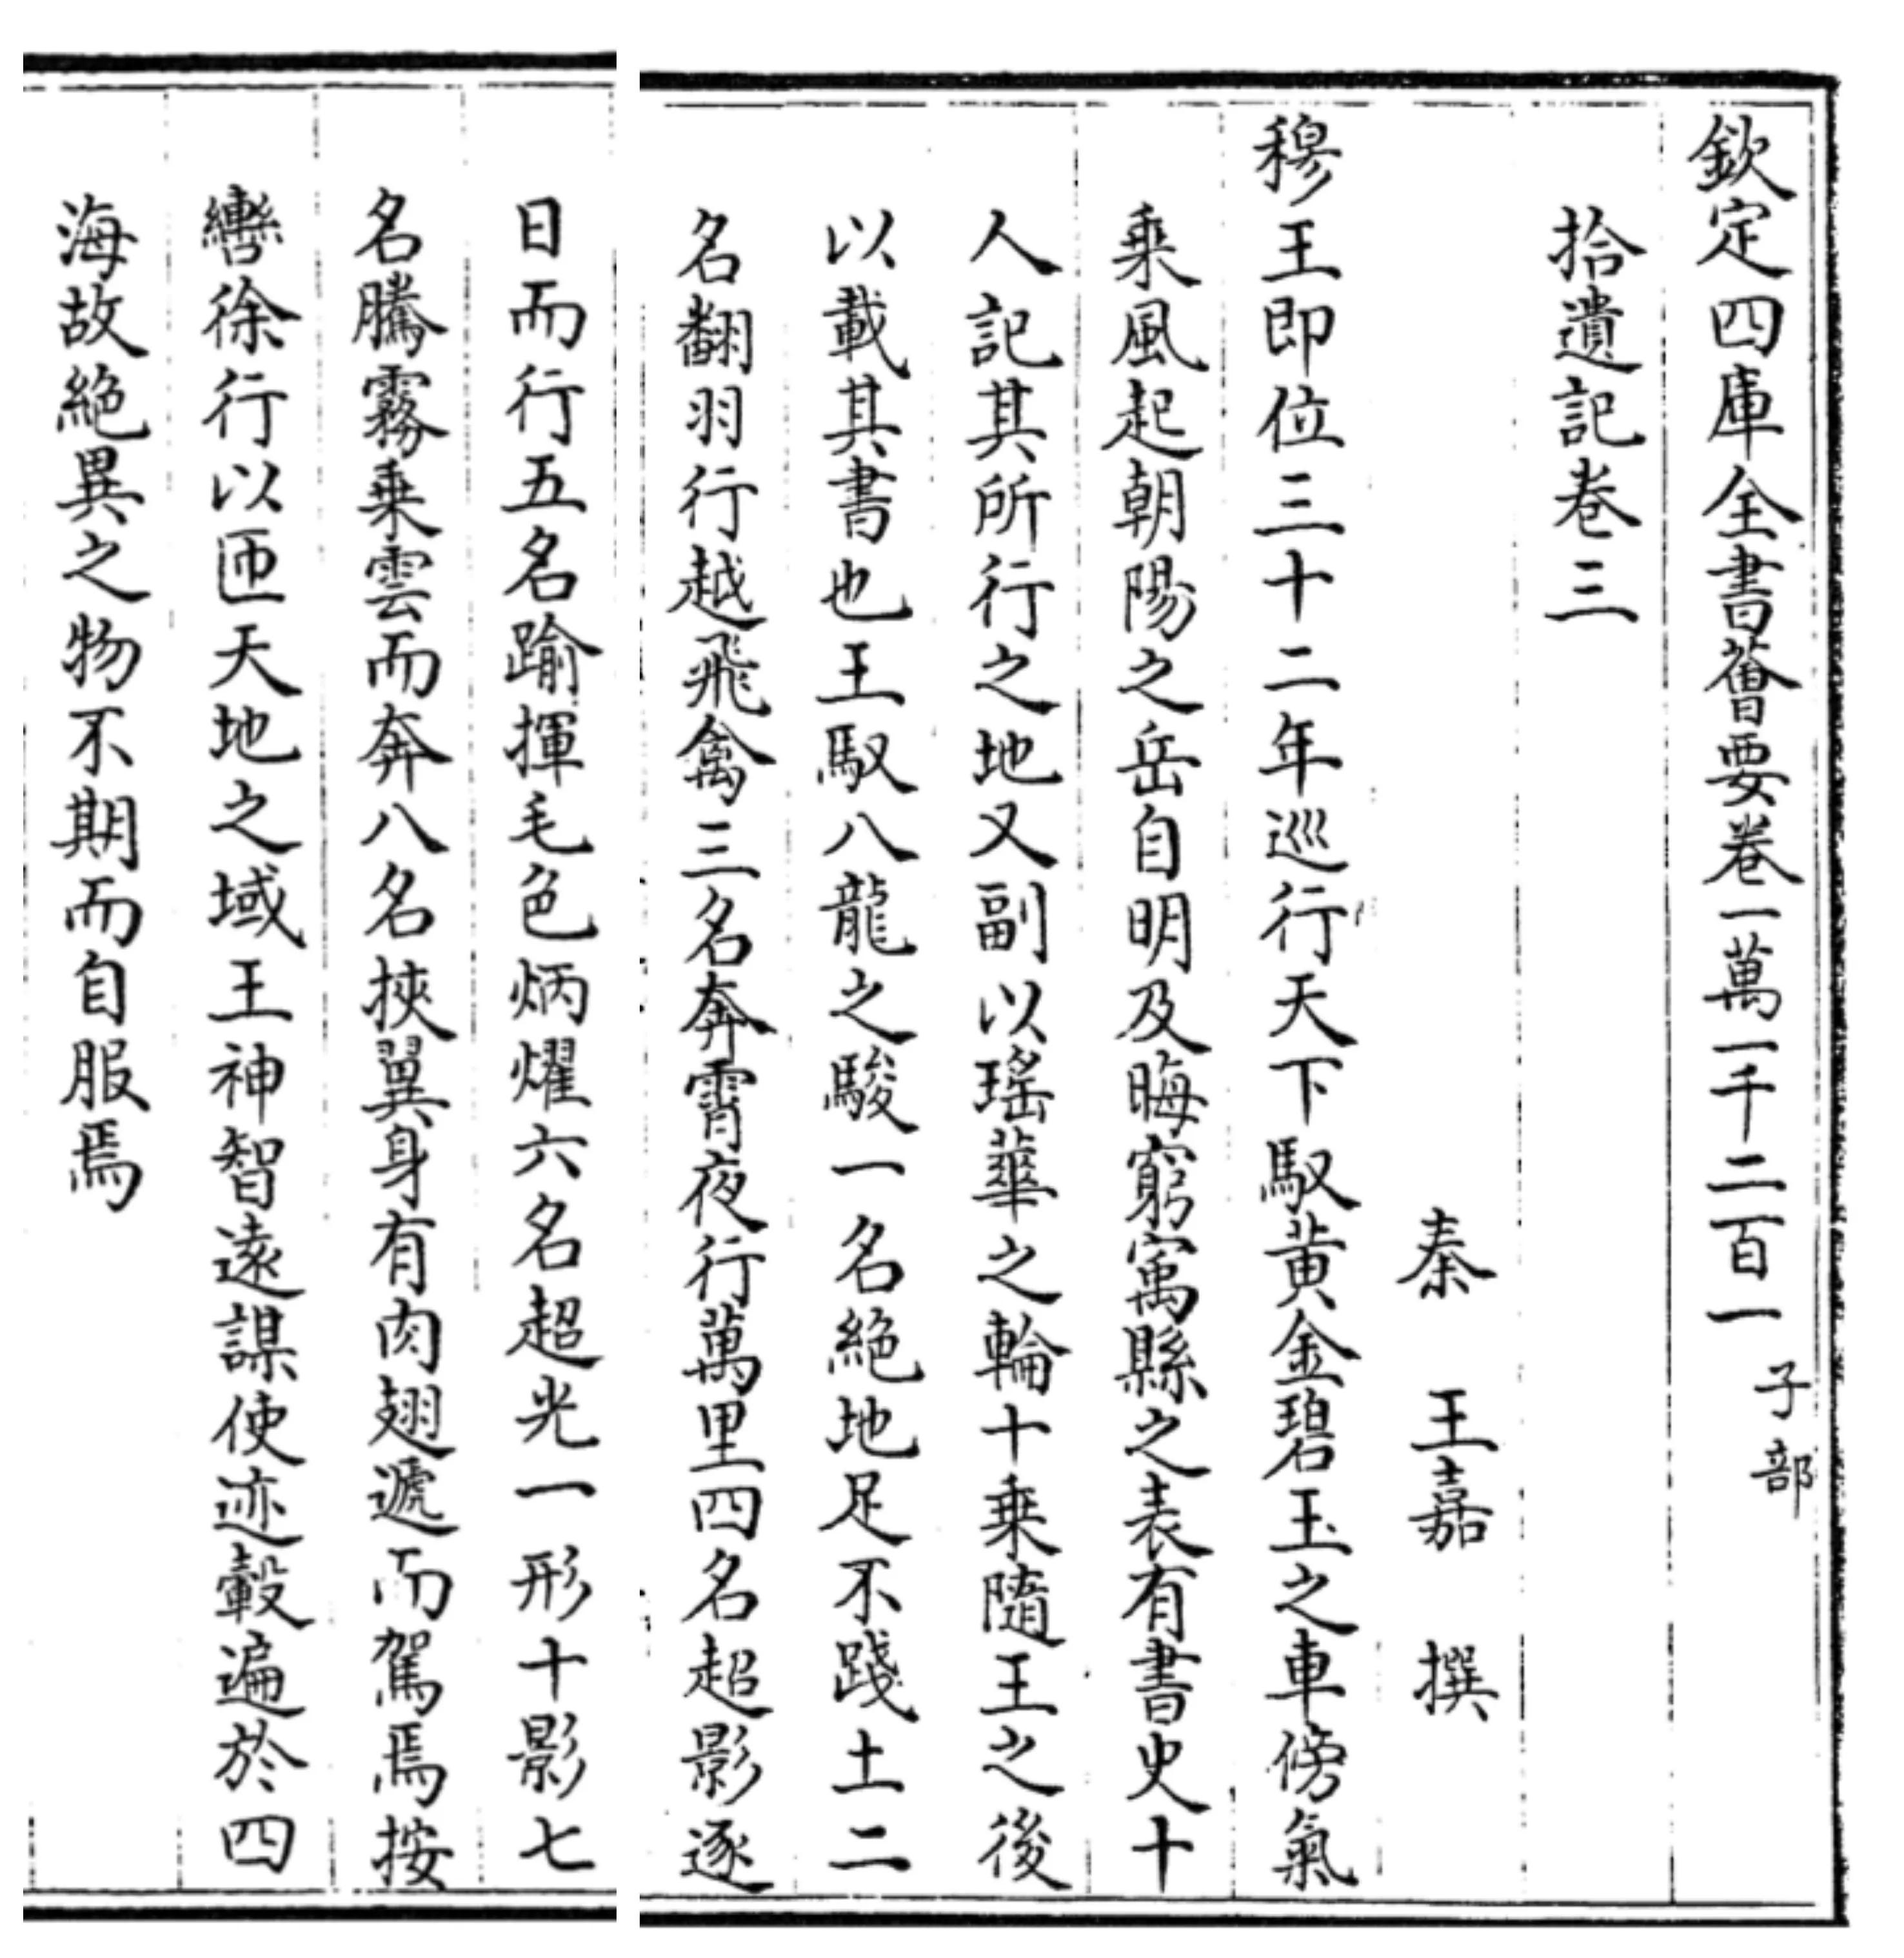 欽定四庫全書薈要卷一萬一千二百一子部
拾遺記卷三
秦 王嘉 撰
穆王即位三十二年巡行天下馭黃金碧玉之車傍氣
乗風起朝陽之岳自明及晦窮寓縣之表有書史十
人記其所行之地又副以瑤華之輪十乗隨王之後
以載其書也王馭八龍之駿一名絶地足不踐土二
名翻羽行越飛禽三名奔霄夜行萬里四名超影逐
日而行五名踰揮毛色炳燿六名超光一形十影七
名騰霧乗雲而奔八名挾翼身有肉翅遞而駕焉按
轡徐行以匝天地之域王神智遠謀使迹轂遍於四
海故絶異之物不期而自服焉